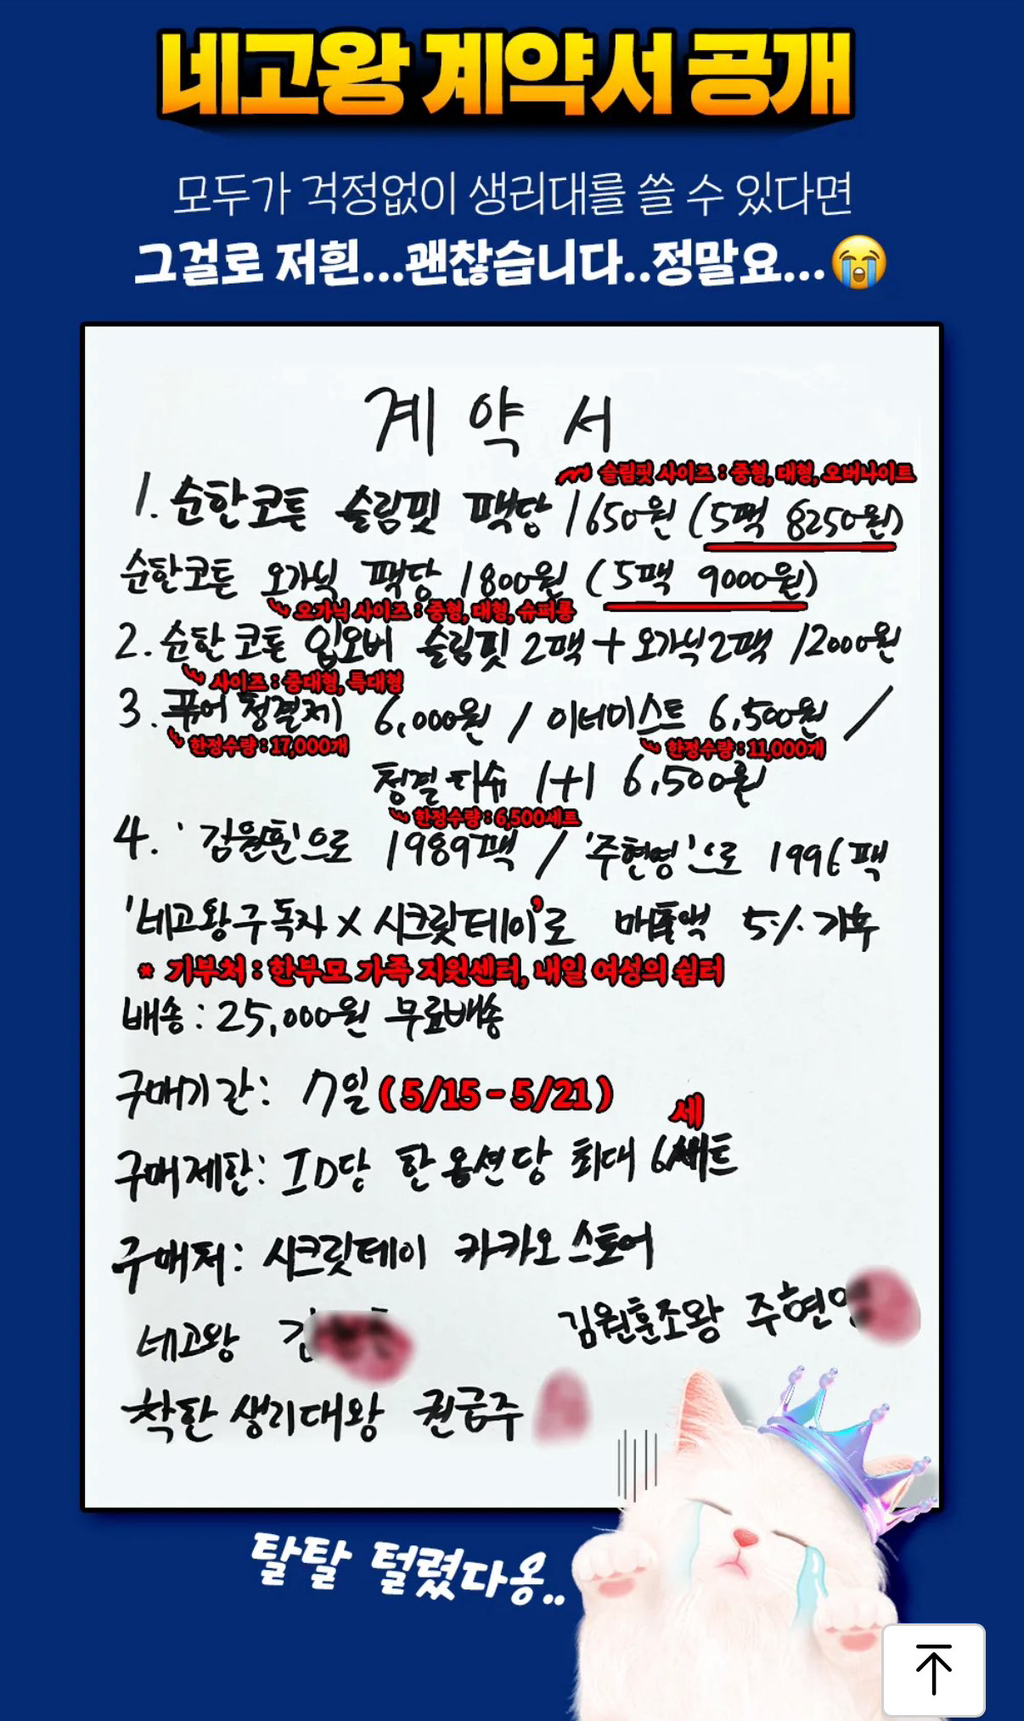 네고왕 계약서 공개
모두가 걱정없이 생리대를 쓸 수 있다면
그걸로 저흰...괜찮습니다..정말요...😭
계약서
슬림핏 사이즈 : 중형, 대형, 오버나이트
1. 순한코튼 슬림핏 팩당 1650원 (5팩 8250원)
순한코튼 오가닉 팩당 1800원 (5팩 9000원)
오가닉 사이즈 : 중형, 대형, 슈퍼롱
2. 순한코튼 입오버 슬림핏 2팩 + 오가닉2팩 12000원
사이즈 : 중대형, 특대형
3. 퓨어 청결제 6,000원 / 이너미스트 6,500원 /
한정수량 : 17,000개 한정수량 : 11,000개
청결티슈 1+1 6,500원
한정수량 : 6,500세트
4. '김원훈'으로 1989팩 / '주현영'으로 1996팩
'네고왕구독자 X 시크릿데이'로 매출액 5% 기부
* 기부처 : 한부모 가족 지원센터, 내일 여성의 쉼터
배송 : 25,000원 무료배송
구매기간 : 7일 (5/15 - 5/21)
세
구매제한 : ID당 한 옵션당 최대 6세트
구매처 : 시크릿데이 카카오스토어
네고왕 김원훈조왕 주현영
착한 생리대왕 권금주
탈탈 털렸다옹..